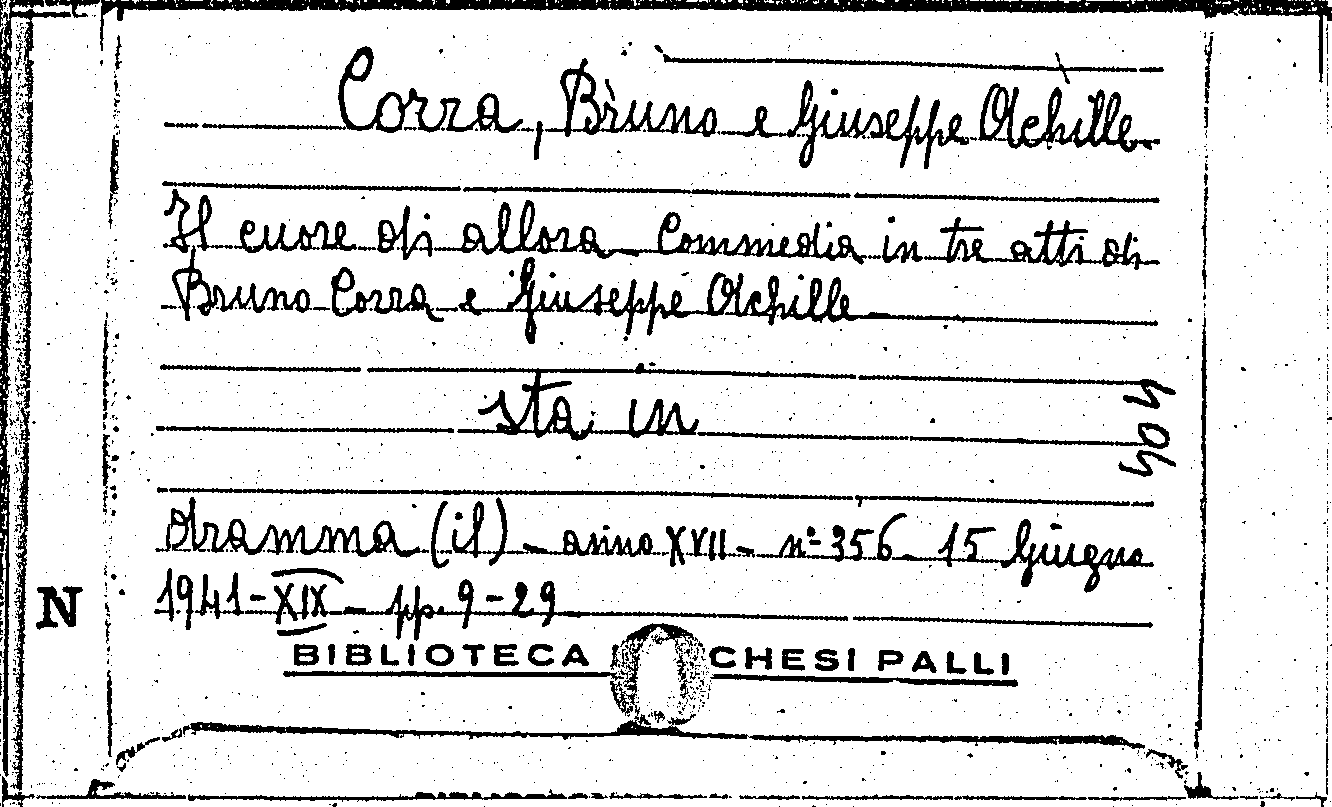 Corra, Bruno e Giuseppe Achille.
Il cuore di allora - Commedia in tre atti di
Bruno Corra e Giuseppe Achille -
sta in
404
dramma (il) - anno XVII - nº 356 - 15 Giugno
1941 - XIX - pp. 9-29
N
BIBLIOTECA CHESI PALLI